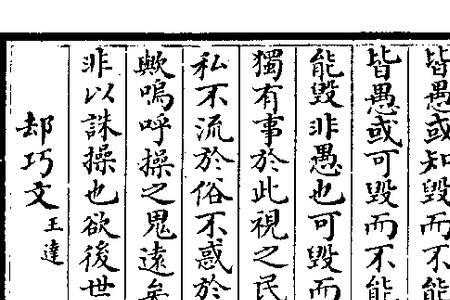 皆愚或知毀而不能
皆愚或可毀而不能
能毀非愚也可毀而
獨有事於此視之民
私不流於俗不惑於
歟嗚呼操之鬼遠矣
非以誅操也欲後世
却巧文 王達